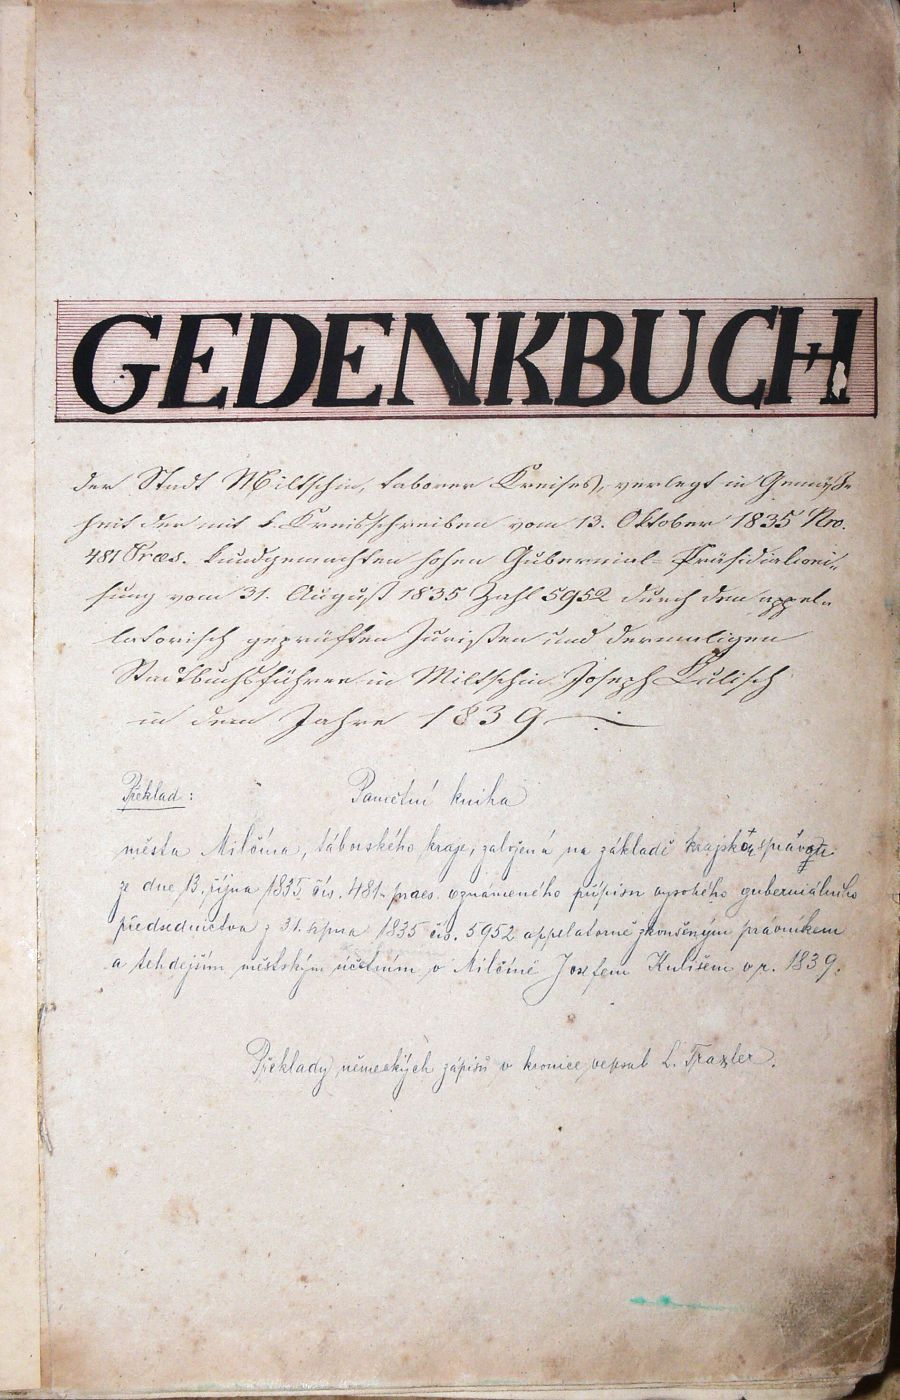 GEDENKBUCH
der Stadt Miltschin, taborer Kreises, verlegt in Gemäß-
heit der mit k. Kreisschreiben vom 13. Oktober 1835 Nro.
481 Præs. kundgemachten hohen Gubernial-Präsidialwei-
sung vom 31. August 1835 Zahl 5952 durch den appel-
latorisch geprüften Juristen und dermaligen
Stadtbuchsführer in Miltschin Joseph Kulisch
in dem Jahre 1839
Překlad: Pamětní kniha
města Milčína, táborského kraje, založená na základě
ze dne 13. října 1835 čís. 481 praes. oznámeného přípisu vysokého guberniálního
předsednictva z 31. srpna 1835 čís. 5952 appelatorně zkoušeným právníkem
a tehdejším městským účetním v Milčíně Josefem Kulišem v r. 1839.
Překlady německých zápisů v kronice vepsal L. Traxler.